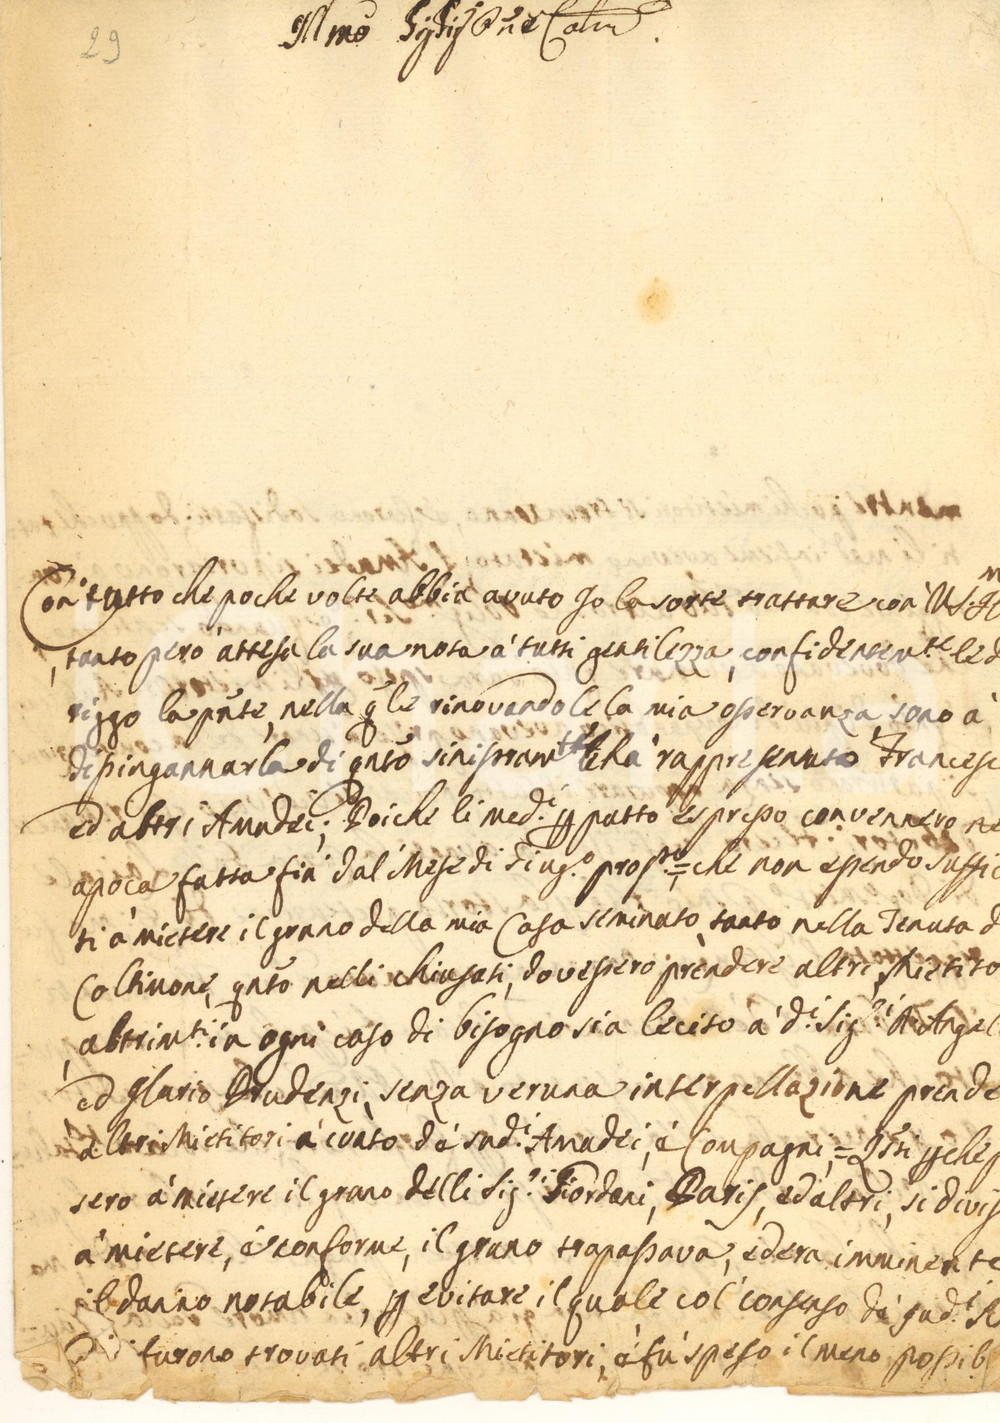 29
Illmo Sig Sig Pne Colmo
Con tutto che poche volte abbia avuto Io la sorte trattare con VS Il
, tanto però attesa la sua nota à tutti gentilezza, confidentemte le d
rizzo la pnte, nella qle rinovandole la mia osservanza, sono à
disingannarla di qnto sinistramte le hà rappresentato Francesc
ed altri Amadei; Poiche li med.i p patto espresso convennero ne
apoca fatta fin dal Mese di Giug.o pros.o = che non essendo suffic
ti à mietere il grano della mia Casa seminato, tanto nella Tenuta d
Colfiuone, qnto nelli chiusati, dovessero prendere altri Mietito
, altrimti in ogni caso di bisogno sia lecito à d.i Sig.ri Angel
ed Ilario Prudenzi, senza veruna interpellazione prende
altri Mietitori à conto dé sud.i Amadei, é Compagni; = Qsti p che p
sero à mietere il grano delli Sig.ri Giordani, Paris, ed altri, si divis
à mietere, é conforme, il grano trapassava, ed era imminente
il danno notabile, p evitare il quale col consenso dé sud.i
furono trovati altri Mietitori, é fú speso il meno possib